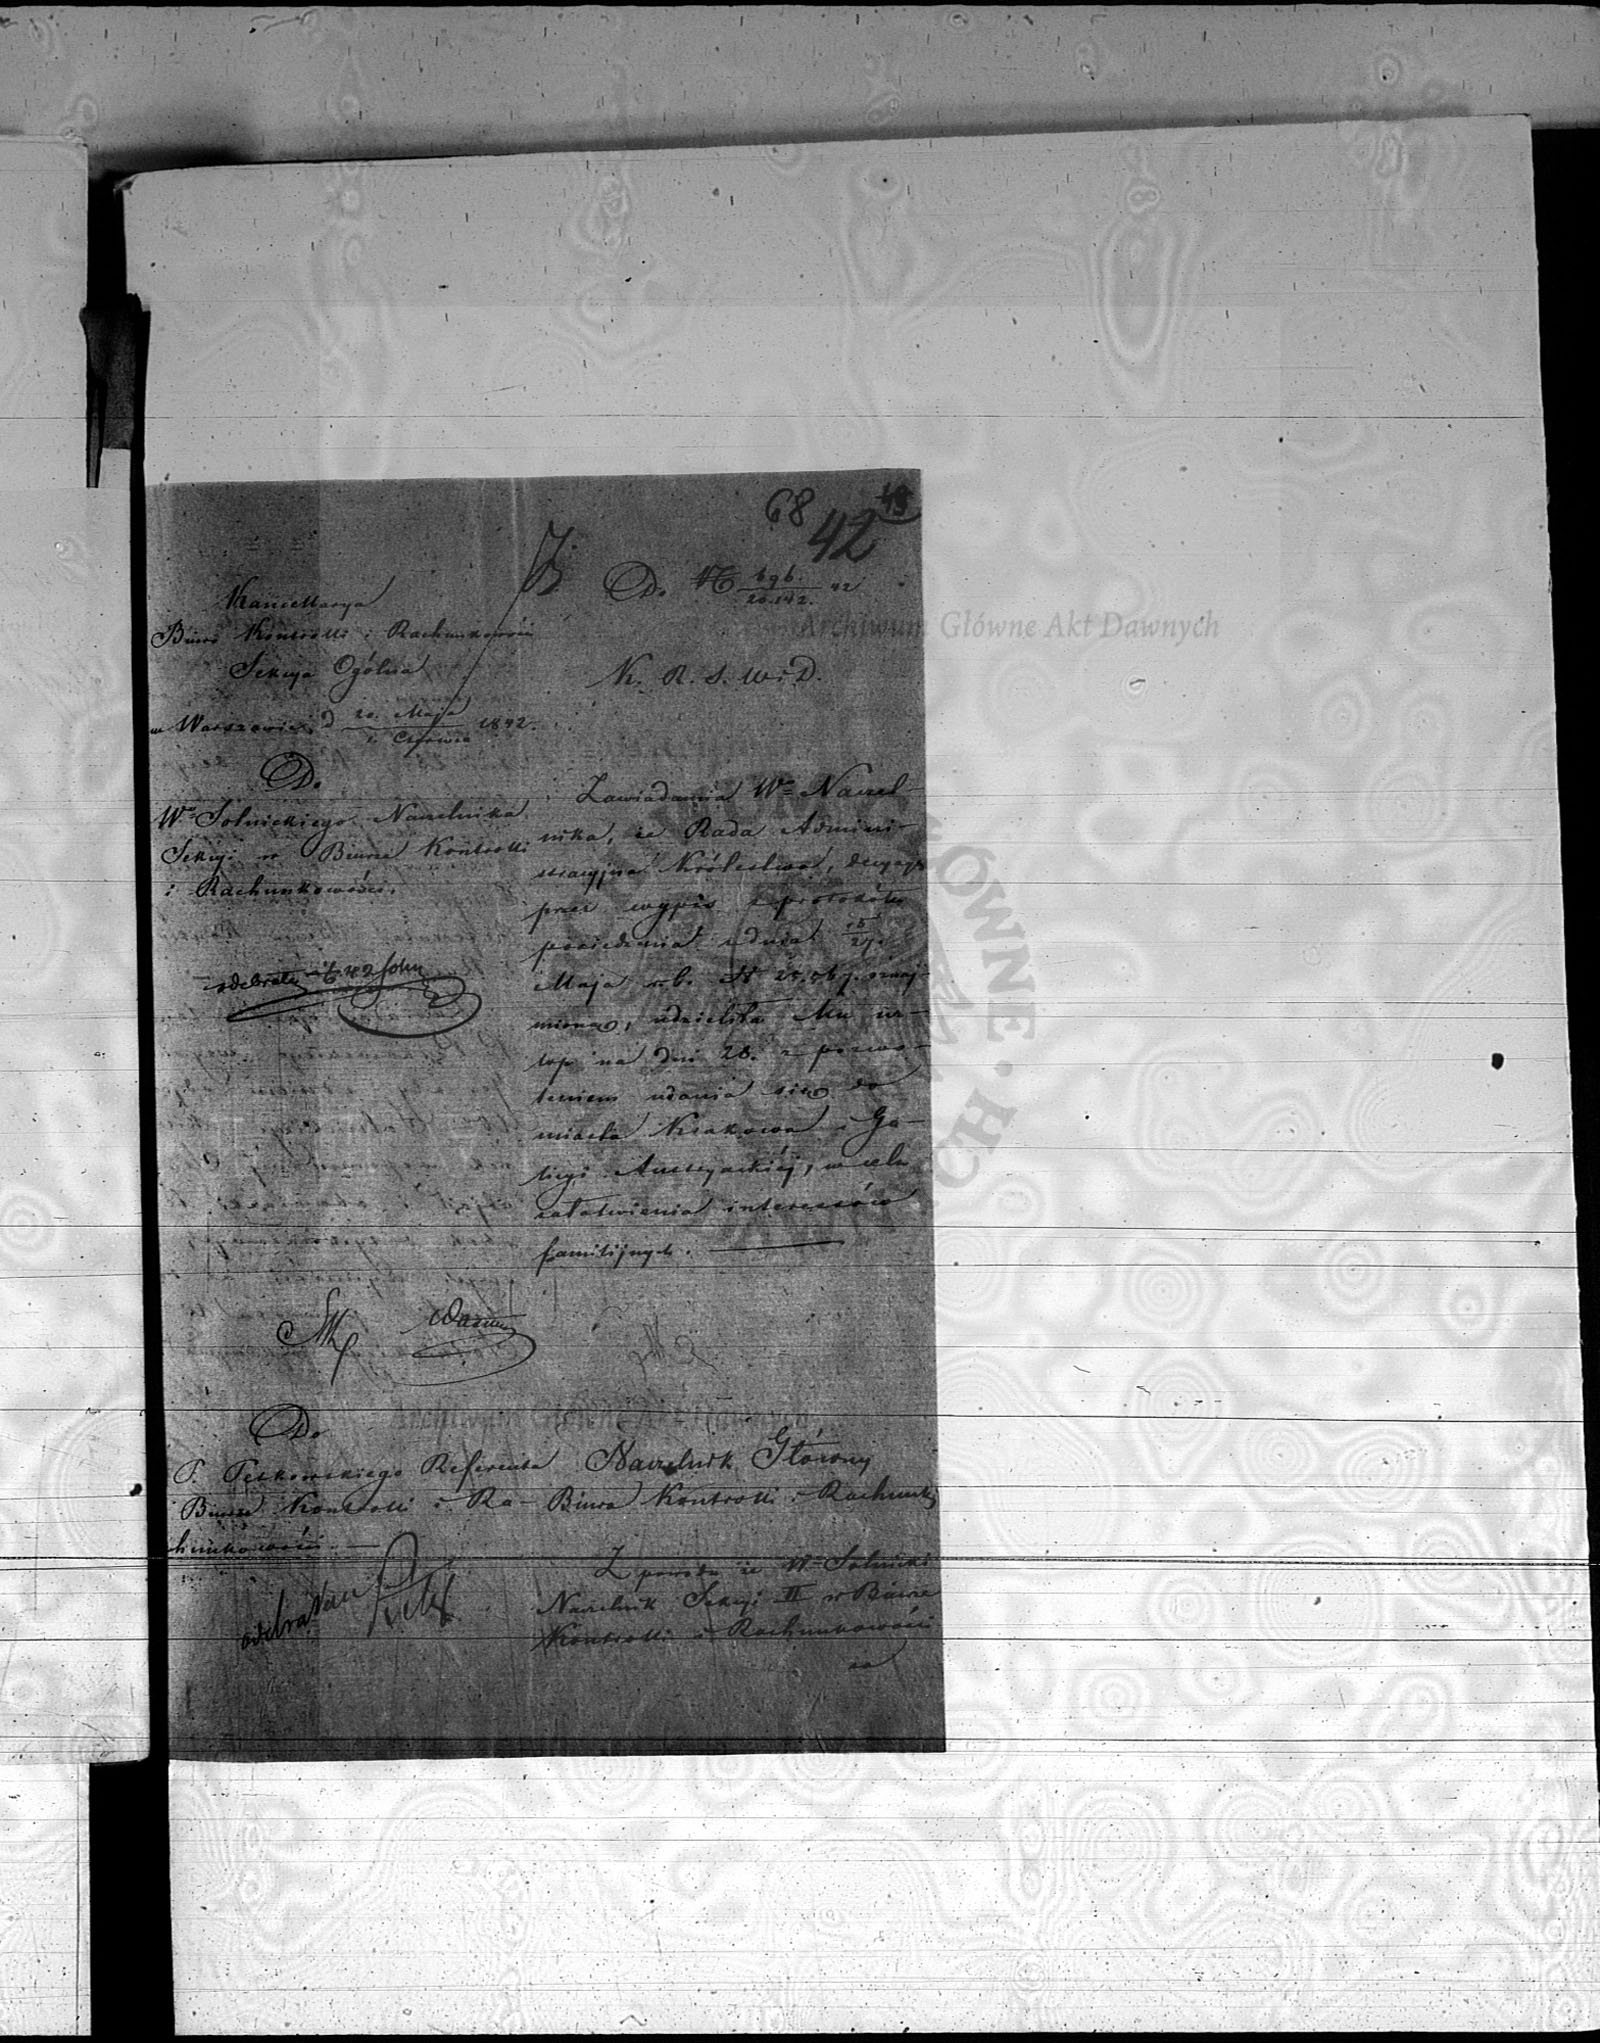 68
43
42
Do N 696./20.142. 42
Kancellarya
Biura Kontrolli i Rachunkowości
Sekcya Ogólna
w Warszawie d 20. Maja/1. Czerwca 1842.
K. R. S. W. i D.
Do
Wo Solnickiego Naczelnika
Sekcyi w Biurze Kontrolli
i Rachunkowości.
odebrałem
Zawiadamia Wo Naczel-
nika, że Rada Admini-
stracyjna Królestwa, decyzyą
przez wypis z protokółu
posiedzenia z dnia 15/27.
Maja r. b. N
mioną, udzieliła Mu ur-
lop na dni 28. z pozwo-
leniem udania się do
miasta Krakowa i Ga-
licyi Austryackiéj, w celu
załatwienia interessów
familijnych.
Do
P. Petkowskiego Referenta
Biurze Kontrolli i Ra-
chunkowości.
odebrałem
Naczelnik Główny
Biura Kontrolli i Rachunk
Z powodu że Wy Solnicki
Naczelnik Sekcyi II w Biurze
Kontrolli i Rachunkowości
Archiwum Główne Akt Dawnych
Archiwum Główne Akt Dawnych